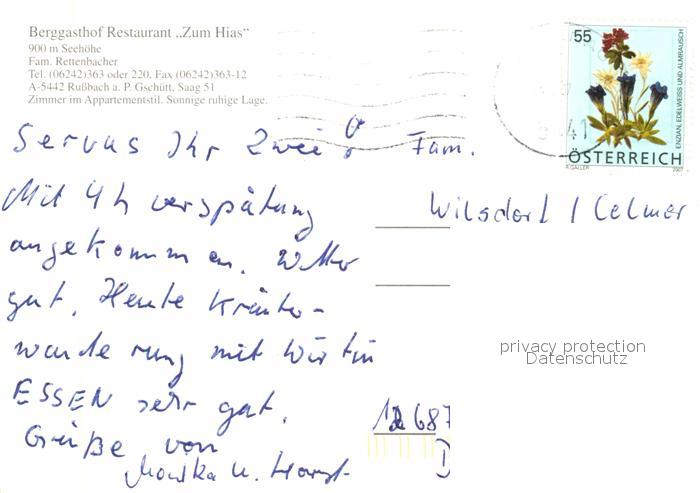 Berggasthof Restaurant „Zum Hias"
900 m Seehöhe
Fam. Rettenbacher
Tel. (06242)363 oder 220, Fax (06242)363-12
A-5442 Rußbach a. P. Gschütt, Saag 51
Zimmer im Appartementstil. Sonnige ruhige Lage.
Servus Ihr Zwei
Mit 4 h verspätung
angekommen. Wetter
gut. Heute Kräuter-
wanderung mit Wirtin
ESSEN sehr gut.
Grüße von
Monika u. Horst
55
ENZIAN, EDELWEISS UND ALMRAUSCH
ÖSTERREICH
A.GALLER 2007
Fam.
Wilsdorf / Celmer
privacy protection
Datenschutz
12687
D